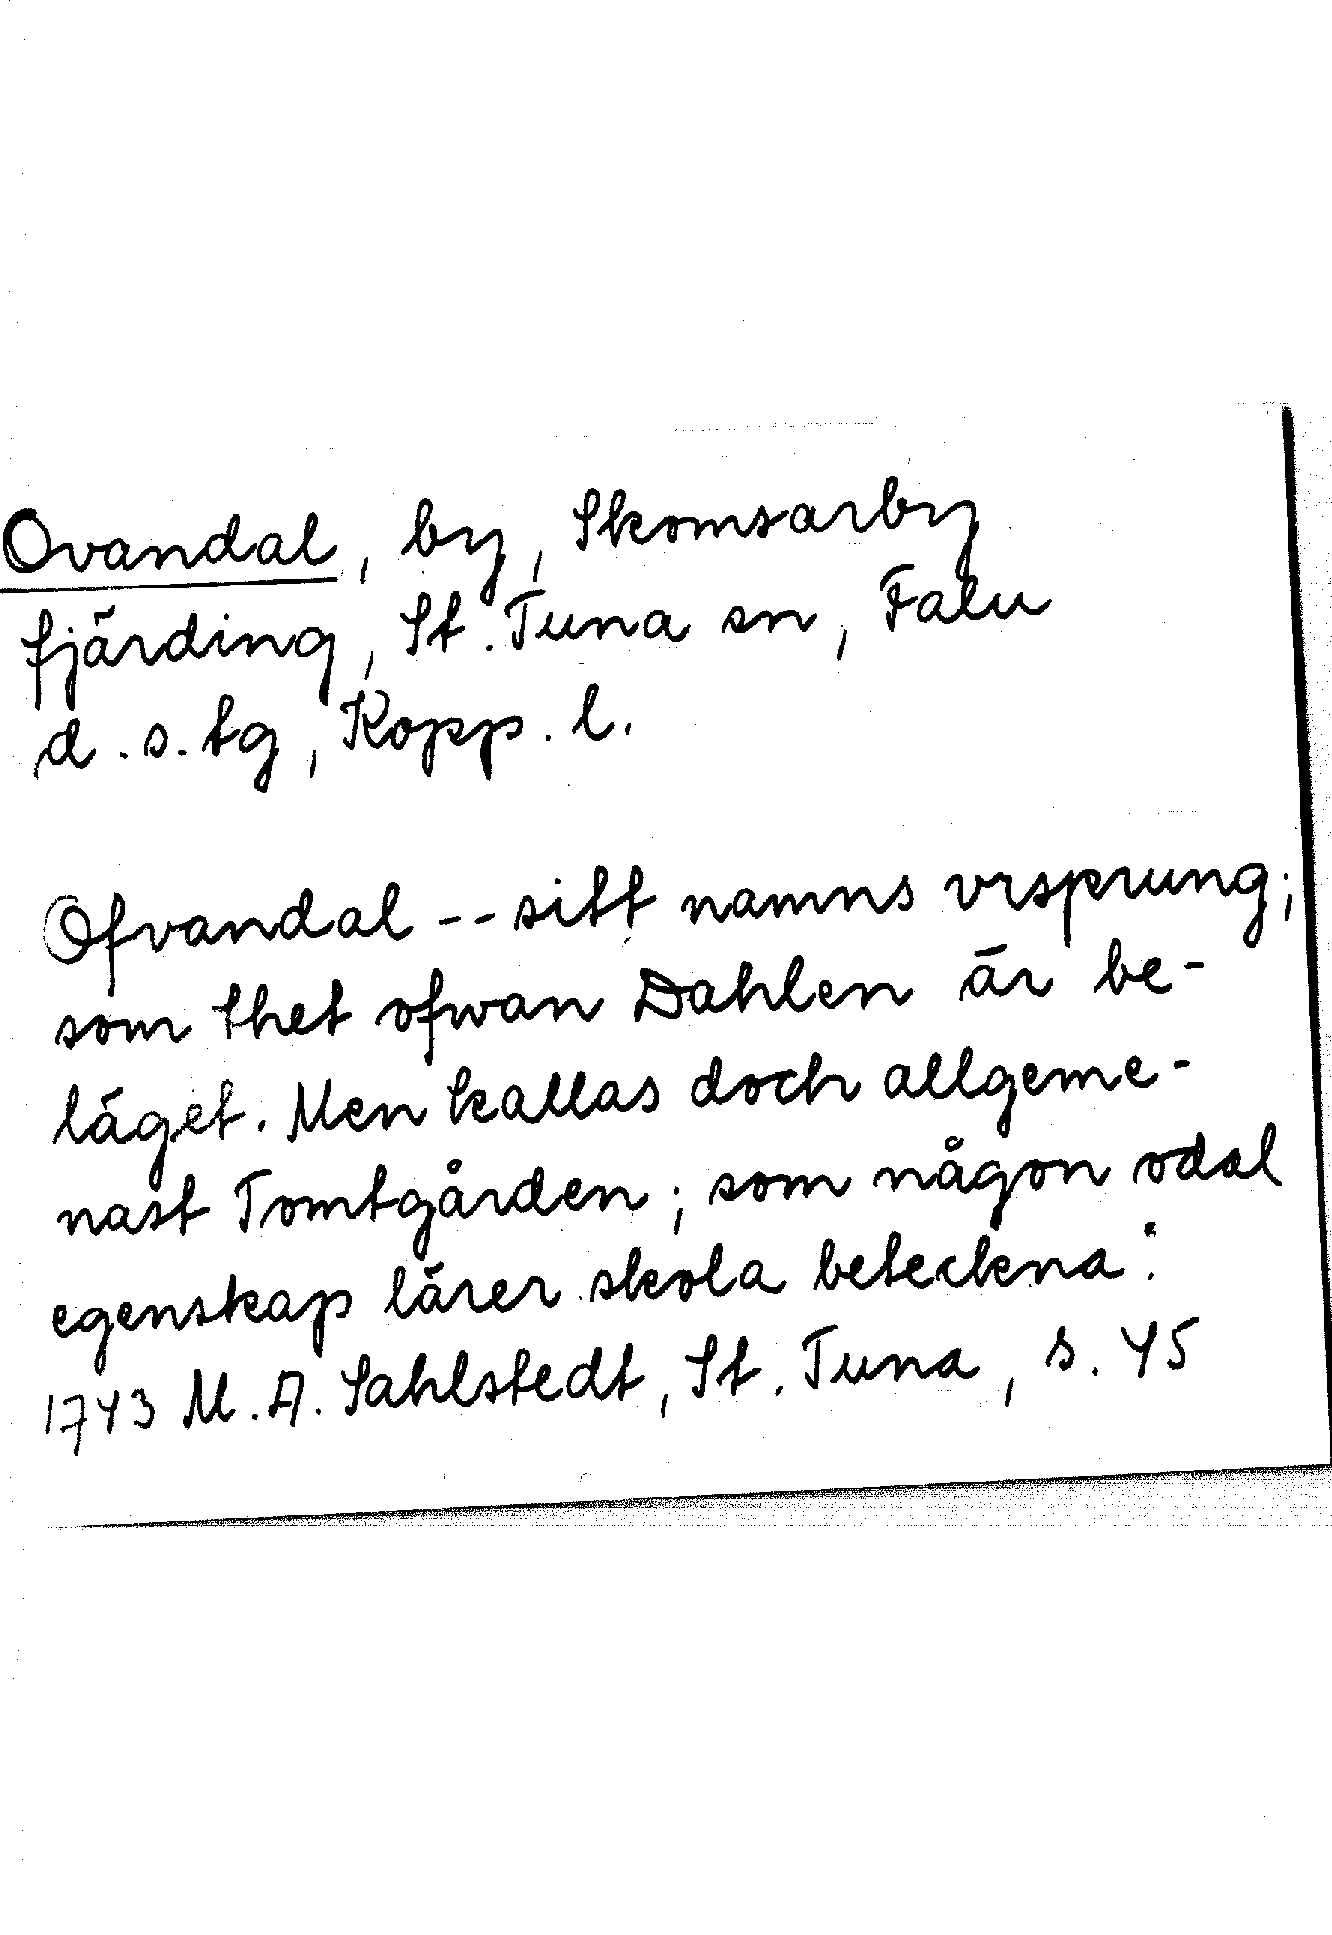 Ovandal, by, Skomsarby
fjärding, St. Tuna sn, Falu
d.s.tg, Kopp. l.
Ofvandal -- sitt namns vrsprung;
som thet ofwan Dahlen är be-
läget. Men kallas doch allgeme-
nast Tomtgården; som någon odal
egenskap lärer skola beteckna:
1743 M.A. Sahlstedt, St. Tuna, s. 45